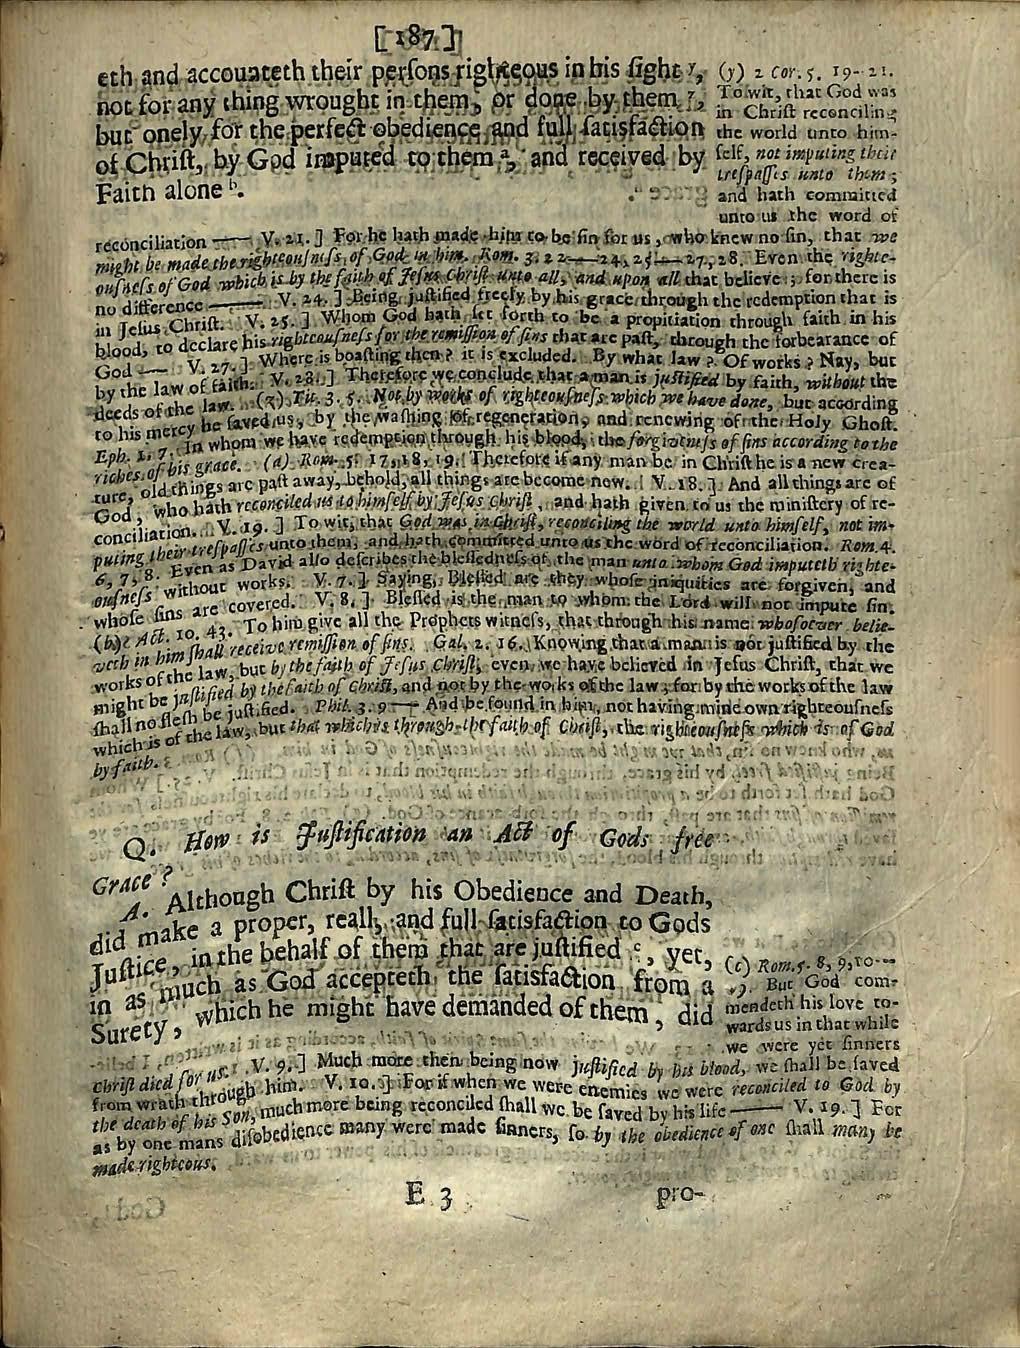 [ 187 ]
eth and accounteth their perſons righteous in his ſight y,
not for any thing wrought in them, or done by them z,
but onely for the perfect obedience and full ſatisfaction
of Chriſt, by God imputed to them a, and received by
Faith alone b.
(y) 2 Cor. 5. 19-21.
To wit, that God was
in Chriſt reconciling
the world unto him-
ſelf, not imputing their
treſpaſſes unto them;
and hath committed
unto us the word of
reconciliation —— V. 21. ] For he hath made him to be ſin for us, who knew no ſin, that we
might be made the righteouſneſs of God in him. Rom. 3. 22——24, 25——27, 28. Even the righte-
ouſneſs of God which is by the faith of Jeſus Chriſt unto all, and upon all that believe; for there is
no difference —— V. 24. ] Being juſtified freely by his grace through the redemption that is
in Jeſus Chriſt. V. 25. ] Whom God hath ſet forth to be a propitiation through faith in his
blood, to declare his righteouſneſs for the remiſſion of ſins that are paſt, through the forbearance of
God —— V. 27. ] Where is boaſting then? it is excluded. By what law? Of works? Nay, but
by the law of faith. V. 28. ] Therefore we conclude that a man is juſtified by faith, without the
deeds of the law. (z) Tit. 3. 5. Not by works of righteouſneſs which we have done, but according
to his mercy he ſaved us, by the waſhing of regeneration, and renewing of the Holy Ghoſt.
Eph. 1. 7. In whom we have redemption through his blood, the forgiveneſs of ſins according to the
riches of his grace. (a) Rom. 5. 17, 18, 19. Therefore if any man be in Chriſt he is a new crea-
ture, old things are paſt away, behold, all things are become new. V. 18. ] And all things are of
God, who hath reconciled us to himſelf by Jeſus Chriſt, and hath given to us the miniſtery of re-
conciliation. V. 19. ] To wit, that God was in Chriſt, reconciling the world unto himſelf, not im-
puting their treſpaſſes unto them, and hath committed unto us the word of reconciliation. Rom. 4.
6, 7, 8. Even as David alſo deſcribes the bleſſedneſs of the man unto whom God imputeth righte-
ouſneſs without works. V. 7. ] Saying, Bleſſed are they whoſe iniquities are forgiven, and
whoſe ſins are covered. V. 8. ] Bleſſed is the man to whom the Lord will not impute ſin.
(b) Act. 10. 43. To him give all the Prophets witneſs, that through his name whoſoever belie-
veth in him ſhall receive remiſſion of ſins. Gal. 2. 16. Knowing that a man is not juſtified by the
works of the law, but by the faith of Jeſus Chriſt, even we have believed in Jeſus Chriſt, that we
might be juſtified by the faith of Chriſt, and not by the works of the law; for by the works of the law
ſhall no fleſh be juſtified. Phil. 3. 9 —— And be found in him, not having mine own righteouſneſs
which is of the law, but that which is through the faith of Chriſt, the righteouſneſs which is of God
by faith.
Q. How is Juſtification an Act of Gods free
Grace?
A. Although Chriſt by his Obedience and Death,
did make a proper, reall, and full ſatisfaction to Gods
Juſtice, in the behalf of them that are juſtified c, yet,
in as much as God accepteth the ſatisfaction from a
Surety, which he might have demanded of them, did
(c) Rom. 5. 8, 9, 10——
19. But God com-
mendeth his love to-
wards us in that while
we were yet ſinners
Chriſt died for us. V. 9. ] Much more then being now juſtified by his blood, we ſhall be ſaved
from wrath through him. V. 10. ] For if when we were enemies we were reconciled to God by
the death of his Son, much more being reconciled ſhall we be ſaved by his life —— V. 19. ] For
as by one mans diſobedience many were made ſinners, ſo by the obedience of one ſhall many be
made righteous.
E 3 pro-